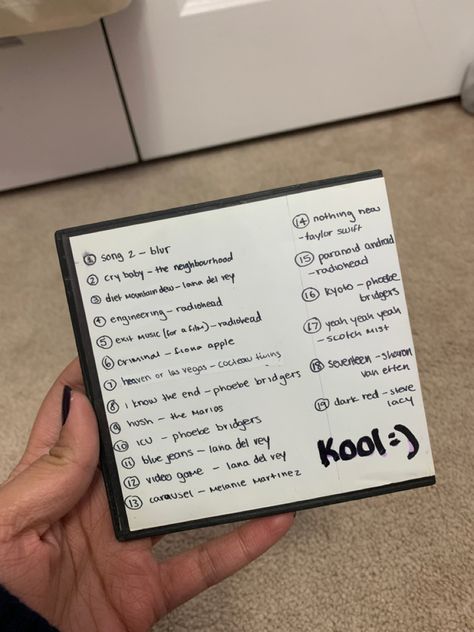 ① song 2 – blur
② cry baby – the neighbourhood
③ diet mountain dew – lana del rey
④ engineering – radiohead
⑤ exit music (for a film) – radiohead
⑥ criminal – fiona apple
⑦ heaven or las vegas – cocteau twins
⑧ I know the end – phoebe bridgers
⑨ hush – the marías
⑩ ICU – phoebe bridgers
⑪ blue jeans – lana del rey
⑫ video game – lana del rey
⑬ carousel – Melanie Martinez
⑭ nothing new
– taylor swift
⑮ paranoid android
– radiohead
⑯ kyoto – phoebe
bridgers
⑰ yeah yeah yeah
– scotch mist
⑱ seventeen – sharon
van etten
⑲ dark red – steve
lacy
Kool =)